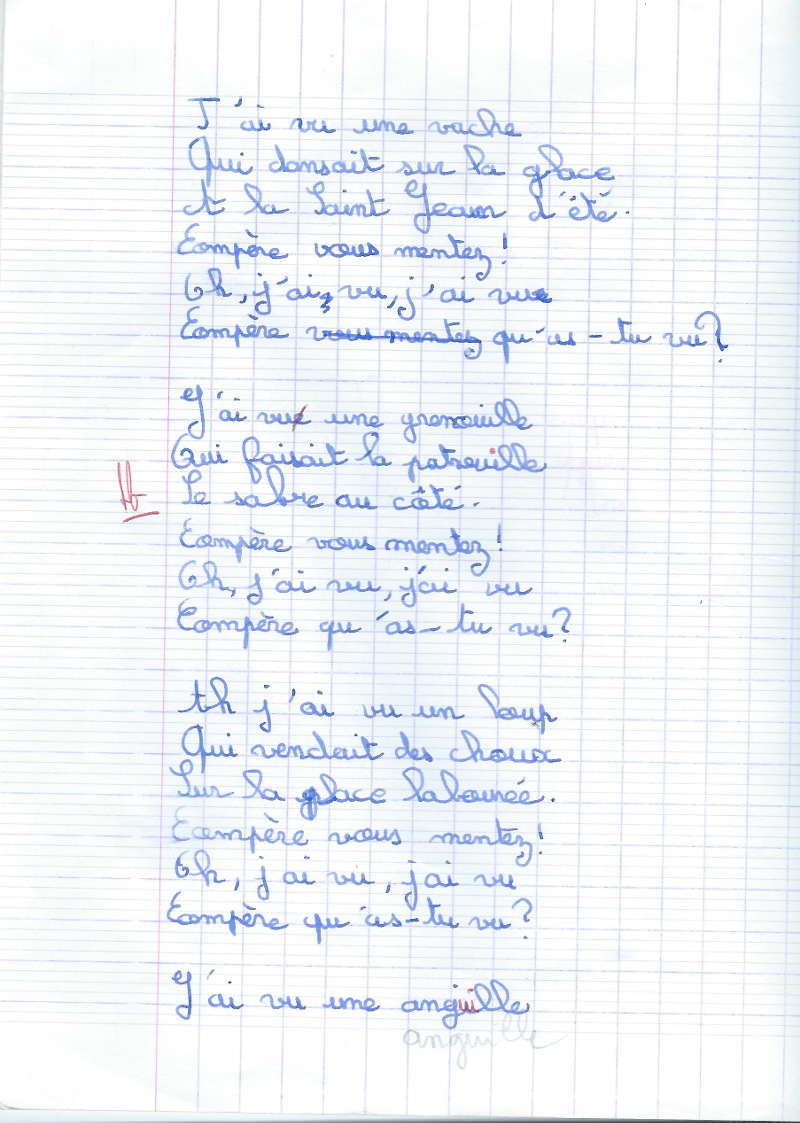 J'ai vu une vache
Qui dansait sur la glace
A la Saint Jean d'été.
Compère vous mentez!
Oh, j'ai vu, j'ai vu
Compère vous mentez qu'as-tu vu?
J'ai vue une grenouille
Qui faisait la patrouille
Le sabre au côté.
Compère vous mentez!
Oh, j'ai vu, j'ai vu
Compère qu'as-tu vu?
Ah j'ai vu un loup
Qui vendait des choux
Sur la place labourée.
Compère vous mentez!
Oh, j'ai vu, j'ai vu
Compère qu'as-tu vu?
J'ai vu une anguille
anguille